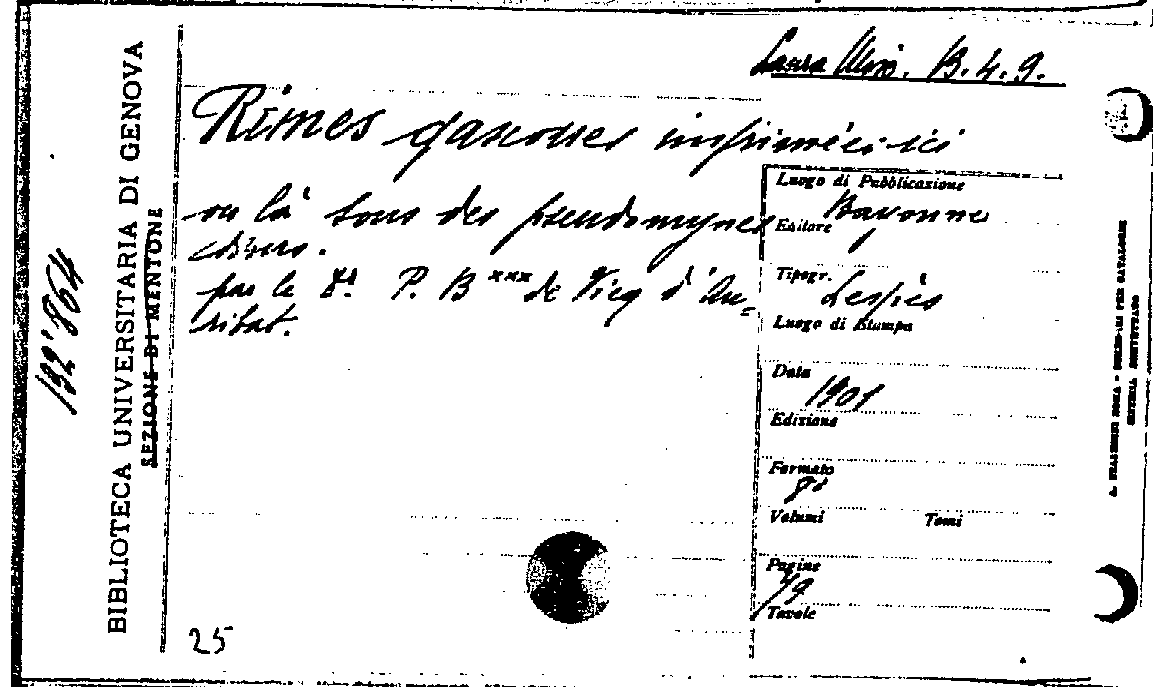 Laura Miro. B.4.9.
Rimes gasconnes imprimées ici
ou là sous des pseudonymes
divers.
par le Dr P. B*** de Vicq d'Au=
ribat.
Luogo di Pubblicazione
Bayonne
Editore
Tipogr.
Lespès
Luogo di Stampa
Data
1901
Edizione
Formato
8°
Volumi Tomi
Pagine
49
Tavole
25
132'864
BIBLIOTECA UNIVERSITARIA DI GENOVA
SEZIONE DI MENTONE